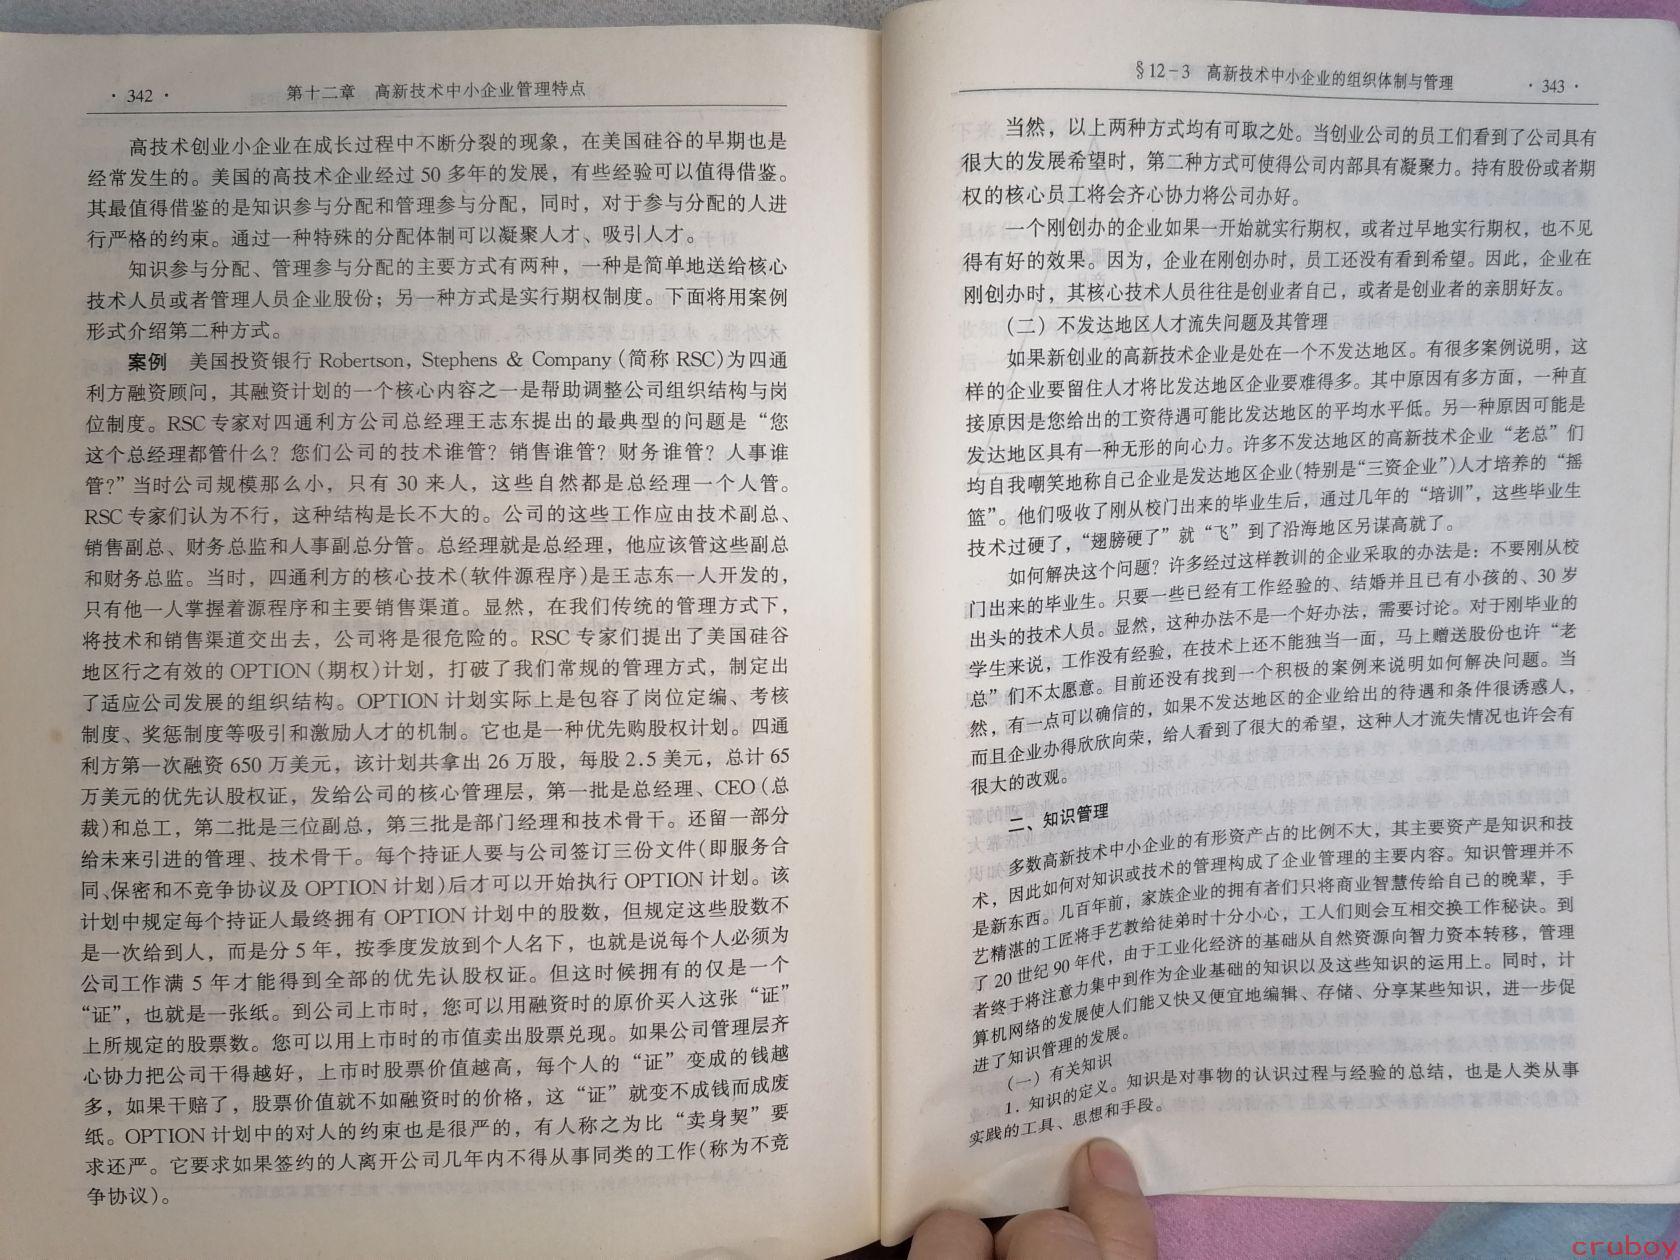 · 342 · 第十二章 高新技术中小企业管理特点
高技术创业小企业在成长过程中不断分裂的现象，在美国硅谷的早期也是
经常发生的。美国的高技术企业经过 50 多年的发展，有些经验可以值得借鉴。
其最值得借鉴的是知识参与分配和管理参与分配，同时，对于参与分配的人进
行严格的约束。通过一种特殊的分配体制可以凝聚人才、吸引人才。
知识参与分配、管理参与分配的主要方式有两种，一种是简单地送给核心
技术人员或者管理人员企业股份；另一种方式是实行期权制度。下面将用案例
形式介绍第二种方式。
案例 美国投资银行 Robertson, Stephens & Company (简称 RSC)为四通
利方融资顾问，其融资计划的一个核心内容之一是帮助调整公司组织结构与岗
位制度。RSC 专家对四通利方公司总经理王志东提出的最典型的问题是“您
这个总经理都管什么？您们公司的技术谁管？销售谁管？财务谁管？人事谁
管？”当时公司规模那么小，只有 30 来人，这些自然都是总经理一个人管。
RSC 专家们认为不行，这种结构是长不大的。公司的这些工作应由技术副总、
销售副总、财务总监和人事副总分管。总经理就是总经理，他应该管这些副总
和财务总监。当时，四通利方的核心技术(软件源程序)是王志东一人开发的，
只有他一人掌握着源程序和主要销售渠道。显然，在我们传统的管理方式下，
将技术和销售渠道交出去，公司将是很危险的。RSC 专家们提出了美国硅谷
地区行之有效的 OPTION (期权)计划，打破了我们常规的管理方式，制定出
了适应公司发展的组织结构。OPTION 计划实际上是包容了岗位定编、考核
制度、奖惩制度等吸引和激励人才的机制。它也是一种优先购股权计划。四通
利方第一次融资 650 万美元，该计划共拿出 26 万股，每股 2.5 美元，总计 65
万美元的优先认股权证，发给公司的核心管理层，第一批是总经理、CEO (总
裁)和总工，第二批是三位副总，第三批是部门经理和技术骨干。还留一部分
给未来引进的管理、技术骨干。每个持证人要与公司签订三份文件(即服务合
同、保密和不竞争协议及 OPTION 计划)后才可以开始执行 OPTION 计划。该
计划中规定每个持证人最终拥有 OPTION 计划中的股数，但规定这些股数不
是一次给到人，而是分 5 年，按季度发放到个人名下，也就是说每个人必须为
公司工作满 5 年才能得到全部的优先认股权证。但这时候拥有的仅是一个
“证”，也就是一张纸。到公司上市时，您可以用融资时的原价买人这张“证”
上所规定的股票数。您可以用上市时的市值卖出股票兑现。如果公司管理层齐
心协力把公司干得越好，上市时股票价值越高，每个人的“证”变成的钱越
多，如果干赔了，股票价值就不如融资时的价格，这“证”就变不成钱而成废
纸。OPTION 计划中的对人的约束也是很严的，有人称之为比“卖身契”要
求还严。它要求如果签约的人离开公司几年内不得从事同类的工作(称为不竞
争协议)。
§12-3 高新技术中小企业的组织体制与管理 · 343 ·
当然，以上两种方式均有可取之处。当创业公司的员工们看到了公司具有
很大的发展希望时，第二种方式可使得公司内部具有凝聚力。持有股份或者期
权的核心员工将会齐心协力将公司办好。
一个刚创办的企业如果一开始就实行期权，或者过早地实行期权，也不见
得有好的效果。因为，企业在刚创办时，员工还没有看到希望。因此，企业在
刚创办时，其核心技术人员往往是创业者自己，或者是创业者的亲朋好友。
(二) 不发达地区人才流失问题及其管理
如果新创业的高新技术企业是处在一个不发达地区。有很多案例说明，这
样的企业要留住人才将比发达地区企业要难得多。其中原因有多方面，一种直
接原因是您给出的工资待遇可能比发达地区的平均水平低。另一种原因可能是
发达地区具有一种无形的向心力。许多不发达地区的高新技术企业“老总”们
均自我嘲笑地称自己企业是发达地区企业(特别是“三资企业”)人才培养的“摇
篮”。他们吸收了刚从校门出来的毕业生后，通过几年的“培训”，这些毕业生
技术过硬了，“翅膀硬了”就“飞”到了沿海地区另谋高就了。
如何解决这个问题？许多经过这样教训的企业采取的办法是：不要刚从校
门出来的毕业生。只要一些已经有工作经验的、结婚并且已有小孩的、30 岁
出头的技术人员。显然，这种办法不是一个好办法，需要讨论。对于刚毕业的
学生来说，工作没有经验，在技术上还不能独当一面，马上赠送股份也许“老
总”们不太愿意。目前还没有找到一个积极的案例来说明如何解决问题。当
然，有一点可以确信的，如果不发达地区的企业给出的待遇和条件很诱惑人，
而且企业办得欣欣向荣，给人看到了很大的希望，这种人才流失情况也许会有
很大的改观。
二、知识管理
多数高新技术中小企业的有形资产占的比例不大，其主要资产是知识和技
术，因此如何对知识或技术的管理构成了企业管理的主要内容。知识管理并不
是新东西。几百年前，家族企业的拥有者们只将商业智慧传给自己的晚辈，手
艺精湛的工匠将手艺教给徒弟时十分小心，工人们则会互相交换工作秘诀。到
了 20 世纪 90 年代，由于工业化经济的基础从自然资源向智力资本转移，管理
者终于将注意力集中到作为企业基础的知识以及这些知识的运用上。同时，计
算机网络的发展使人们能又快又便宜地编辑、存储、分享某些知识，进一步促
进了知识管理的发展。
(一) 有关知识
1. 知识的定义。知识是对事物的认识过程与经验的总结，也是人类从事
实践的工具、思想和手段。
cruboy